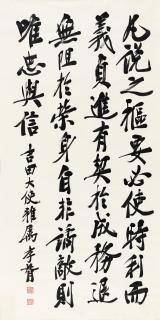 凡説之樞要必使時利而
義貞進有契於成務退
無阻於榮身自非譎敵則
唯忠與信 吉田大使雅属 李